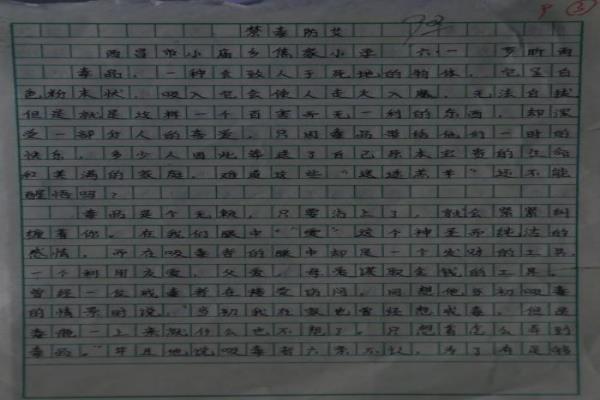 禁毒防艾
西昌市小庙乡焦家小学 六一 罗昕雨
毒品,一种会致人于死地的物体,它呈白
色粉末状,吸入它会使人走火入魔,无法自拔
但是就是这样一个百害而无一利的东西,却深
受一部分人的喜爱,只因毒品带给他们一时的
快乐,多少人因此葬送了自己原本宝贵的生命
和美满的家庭,难道这些“迷途羔羊”还不能
醒悟吗?
毒品是个无赖,只要沾上了,就会紧紧纠
缠着你。在我们眼中“爱”这个神圣而纯洁的
感情,而在吸毒者的眼中却是一个发财的工具
一个利用友爱、父爱、母爱谋取金钱的工具。
曾经一位戒毒者在接受访问,问想他当初吸毒
的情景时说:“当初我在家也曾经想戒毒,但是
毒瘾一上来就什么也不想了。只想着怎么弄到
毒品。”并且他说吸毒者六亲不认,为了有足够